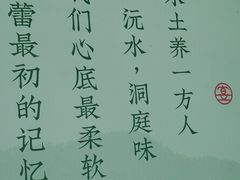 水土养一方人
沅水，洞庭味
们心底最柔软
蕾最初的记忆